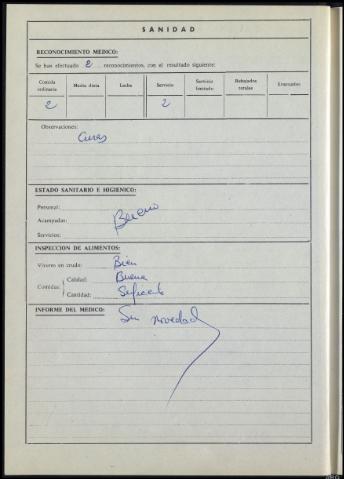 SANIDAD
RECONOCIMIENTO MEDICO:
Se han efectuado 2 reconocimientos, con el resultado siguiente:
Comida ordinaria Media dieta Leche Servicio Servicio limitado Rebajados totales Evacuados
2 2
Observaciones:
Curas
ESTADO SANITARIO E HIGIENICO:
Personal:
Acampadas: Bueno
Servicios:
INSPECCION DE ALIMENTOS:
Víveres en crudo: Bien
Comidas: Calidad: Buena
Cantidad: Suficiente
INFORME DEL MEDICO: Sin novedad